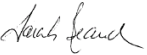 Sarah Beard